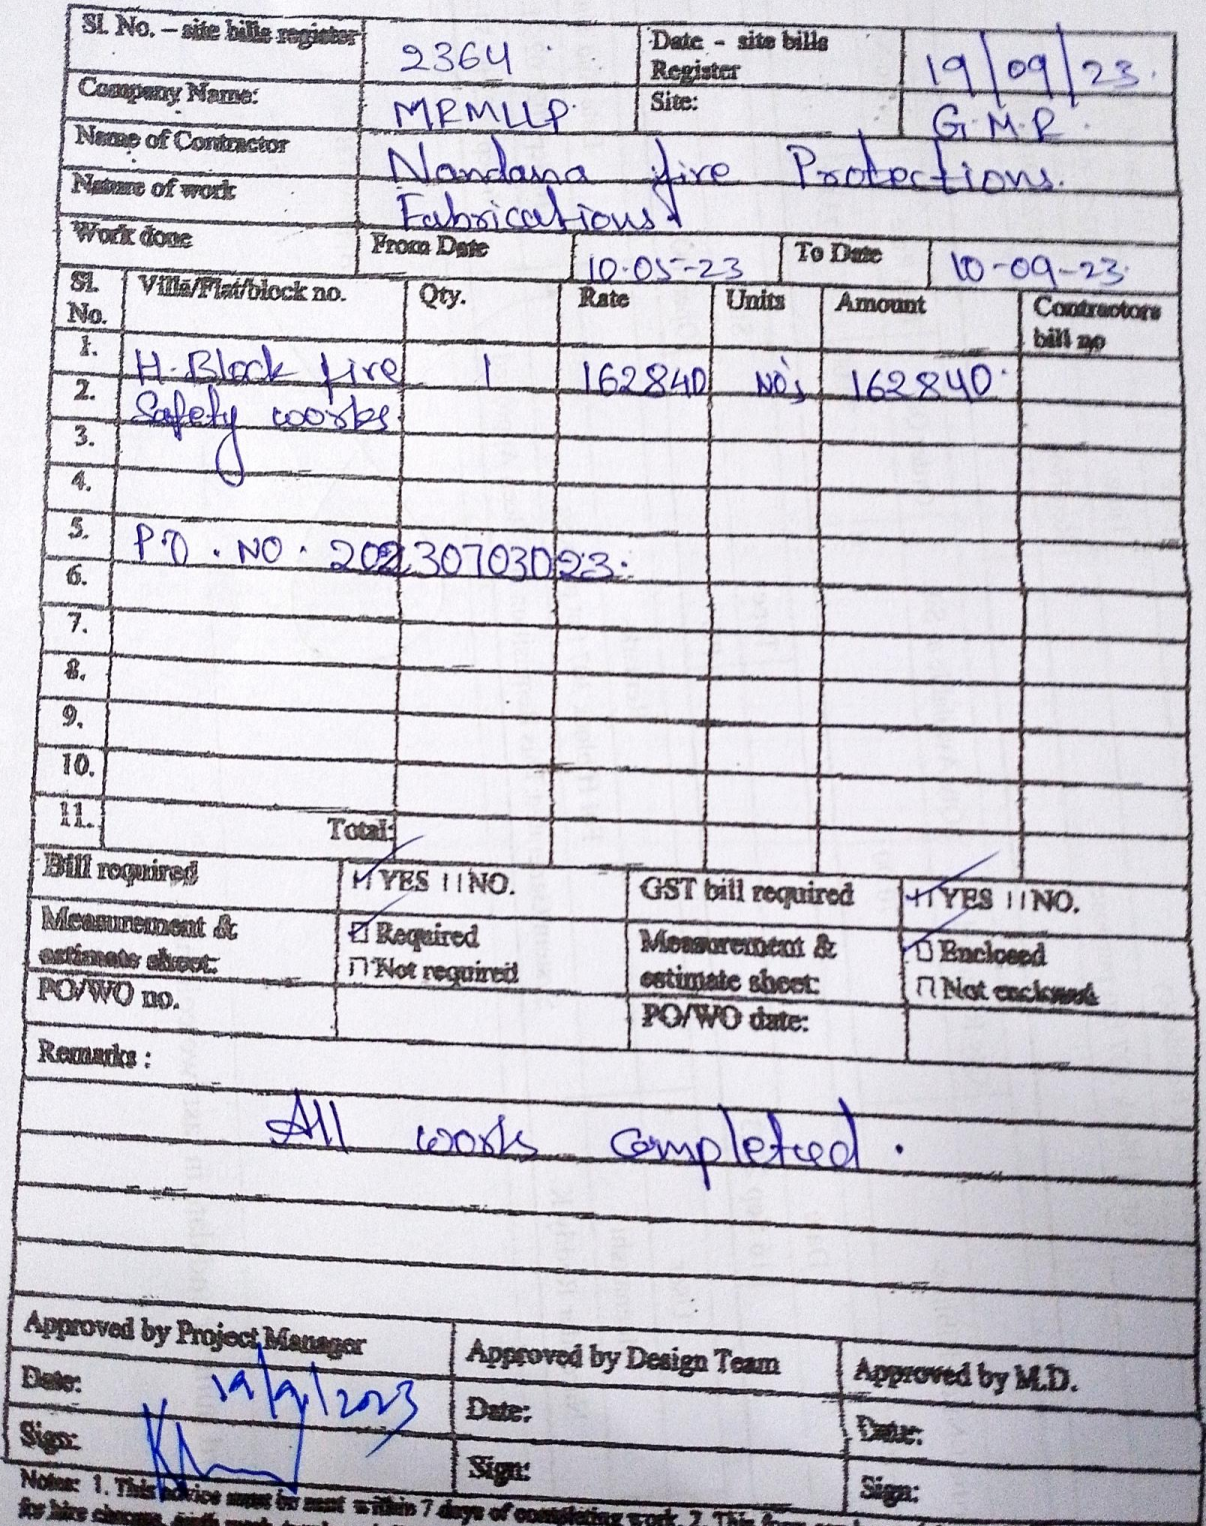 Sl. No. – site bills register 2364 Date - site bills Register 19/09/23.
Company Name: MRMLLP. Site: G.M.R.
Name of Contractor Nandana fire Protections.
Nature of work Fabrications
Work done From Date 10-05-23 To Date 10-09-23.
Sl. No. Villa/Flat/block no. Qty. Rate Units Amount Contractors bill no
1. H-Block fire 1 162840 No's 162840
2. Safety works
3.
4.
5. P.O. NO. 20230703023.
6.
7.
8.
9.
10.
11. Total:
Bill required YES NO. GST bill required YES NO.
Measurement & estimate sheet: Required Measurement & estimate sheet: Enclosed
Not required Not enclosed
PO/WO no. PO/WO date:
Remarks :
All works completed.
Approved by Project Manager Approved by Design Team Approved by M.D.
Date: 19/9/2023 Date: Date:
Sign: Sign: Sign:
Notes: 1. This advice must be sent within 7 days of completing work. 2. This form
for hire